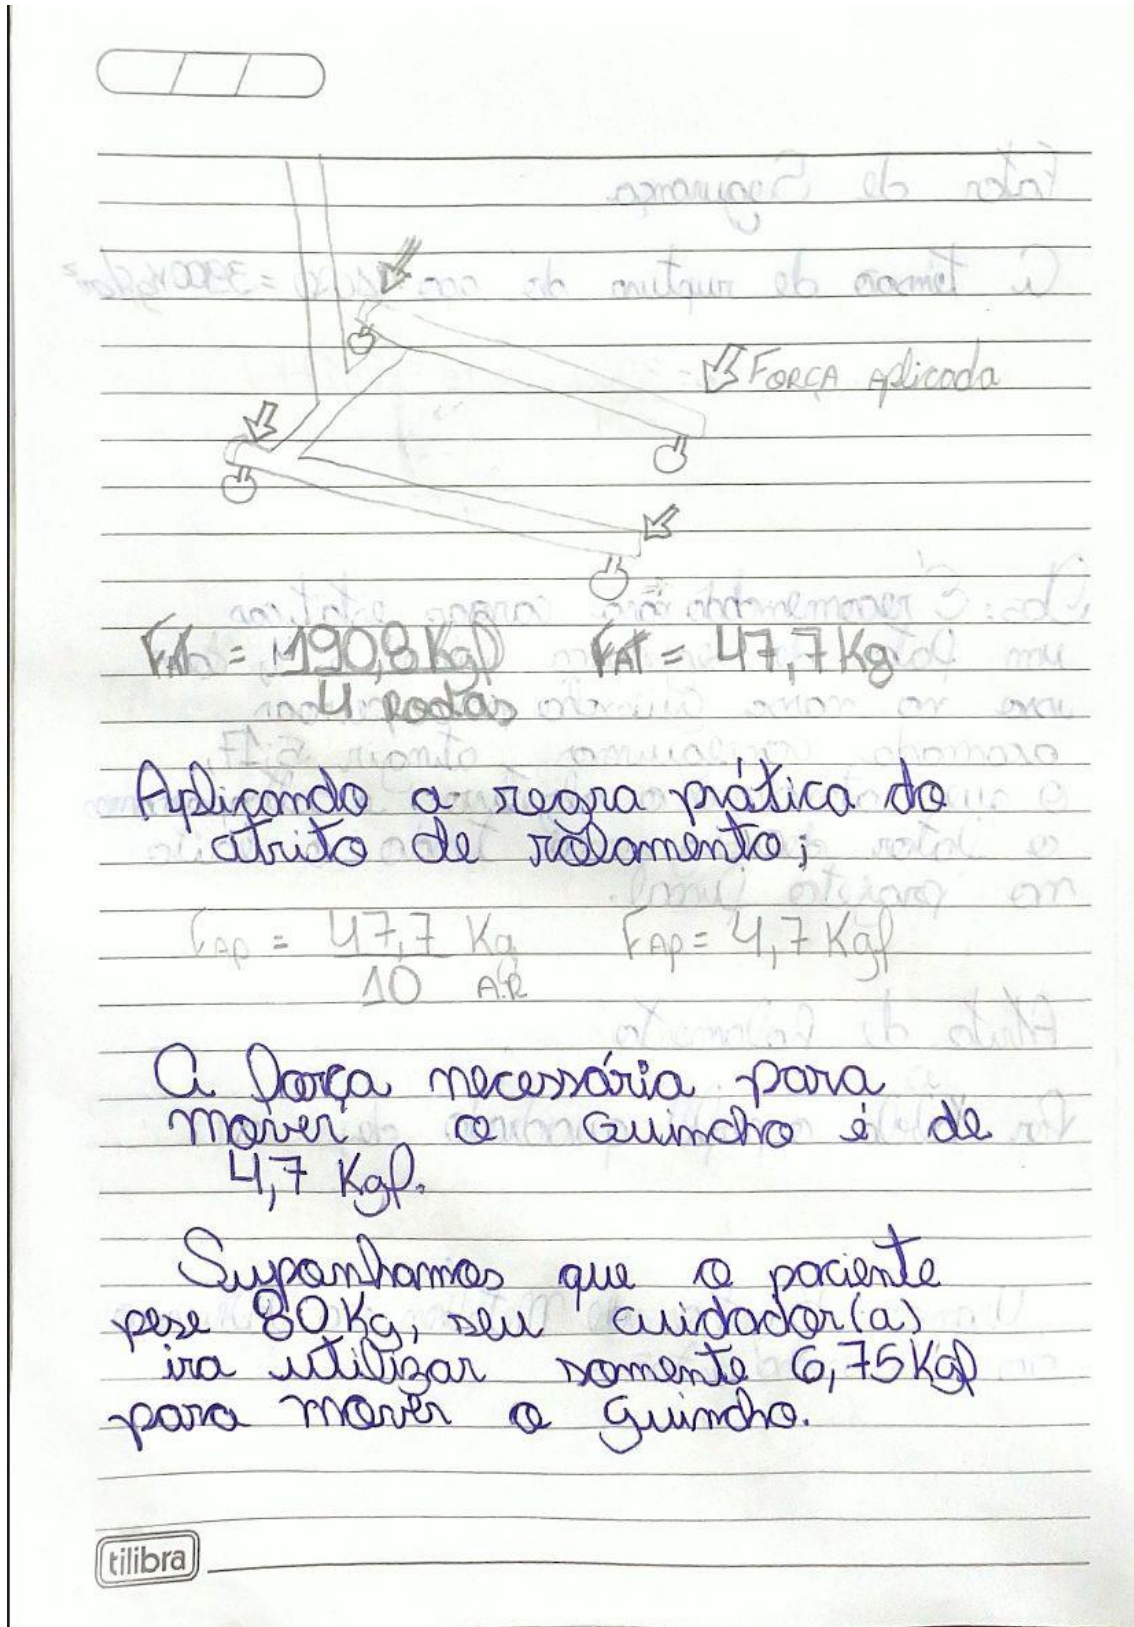 FORÇA Aplicada
FAT = 190,8 Kgf FAT = 47,7 Kg
4 Rodas
Aplicando a regra prática do
atrito de rolamento;
FAP = 47,7 Kg FAP = 4,7 Kgf
10 A.R
A força necessária para
mover o Guincho é de
4,7 Kgf.
Suponhamos que o paciente
pese 80 Kg, seu cuidador(a)
ira utilizar somente 6,75 Kgf
para mover o guincho.
tilibra